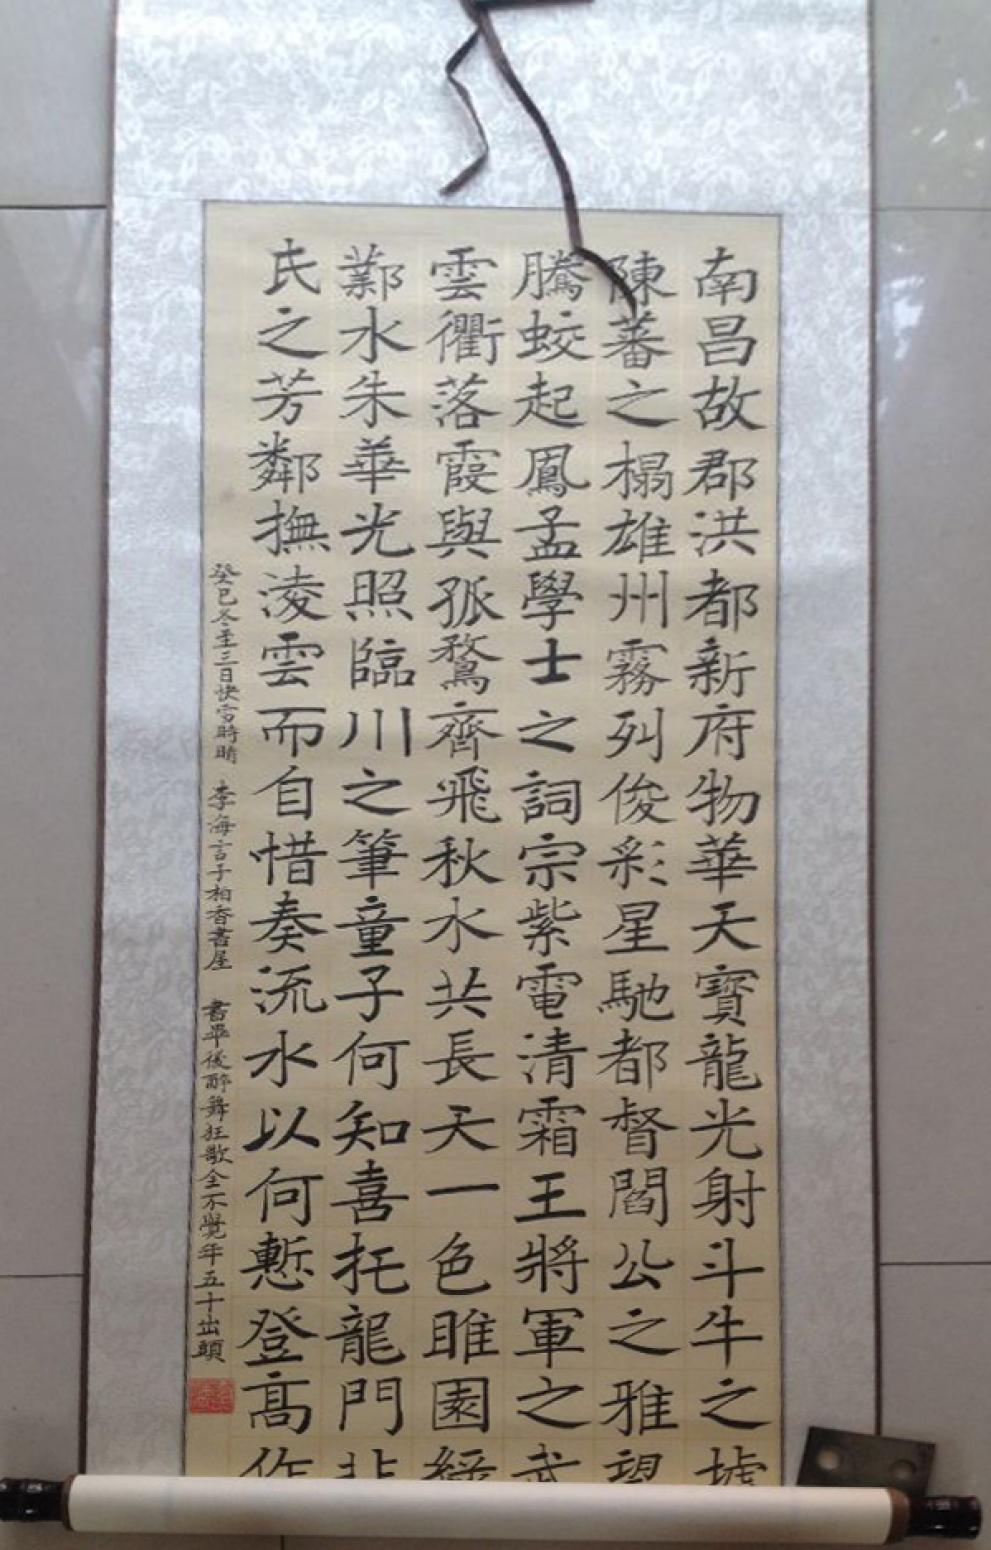 南昌故郡洪都新府物華天寶龍光射斗牛之墟
陳蕃之榻雄州霧列俊彩星馳都督閻公之雅望
騰蛟起鳳孟學士之詞宗紫電清霜王將軍之武
雲衢落霞與孤鶩齊飛秋水共長天一色睢園綠
鄴水朱華光照臨川之筆童子何知喜托龍門非
氏之芳鄰撫淩雲而自惜奏流水以何慙登高作
癸巳冬至三日快雪時晴 李海言于柏香書屋 書畢後醉舞狂歌全不覺年五十出頭